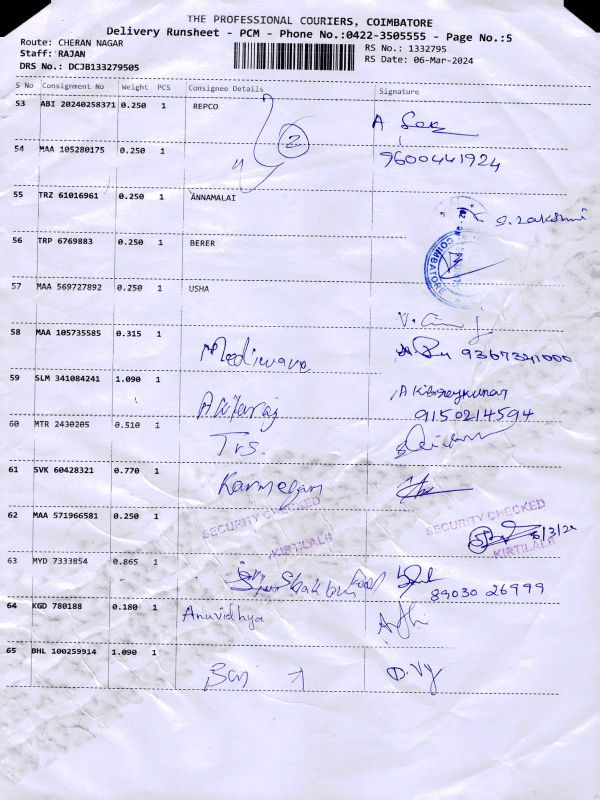 THE PROFESSIONAL COURIERS, COIMBATORE
Delivery Runsheet - PCM - Phone No.:0422-3505555 - Page No.:5
Route: CHERAN NAGAR
RS No.: 1332795
Staff: RAJAN
RS Date: 06-Mar-2024
DRS No.: DCJB133279505
S No Consignment No Weight PCS Consignee Details Signature
53 ABI 20240258371 0.250 1 REPCO
2
54 MAA 105280175 0.250 1 9600441924
55 TRZ 61016961 0.250 1 ANNAMALAI
56 TRP 6769883 0.250 1 BERER
COIMBATORE
57 MAA 569727892 0.250 1 USHA
58 MAA 105735585 0.315 1 9367341000
59 SLM 341084241 1.090 1
9150214594
60 MTR 2430205 0.510 1 Trs.
61 SVK 60428321 0.770 1 Karmegam
SECURITY CHECKED SECURITY CHECKED
62 MAA 571966581 0.250 1
KIRTILALS KIRTILALS
63 MYD 7333854 0.865 1
89030 26999
64 KGD 780188 0.180 1 Anuvidhya
65 BHL 100259914 1.090 1